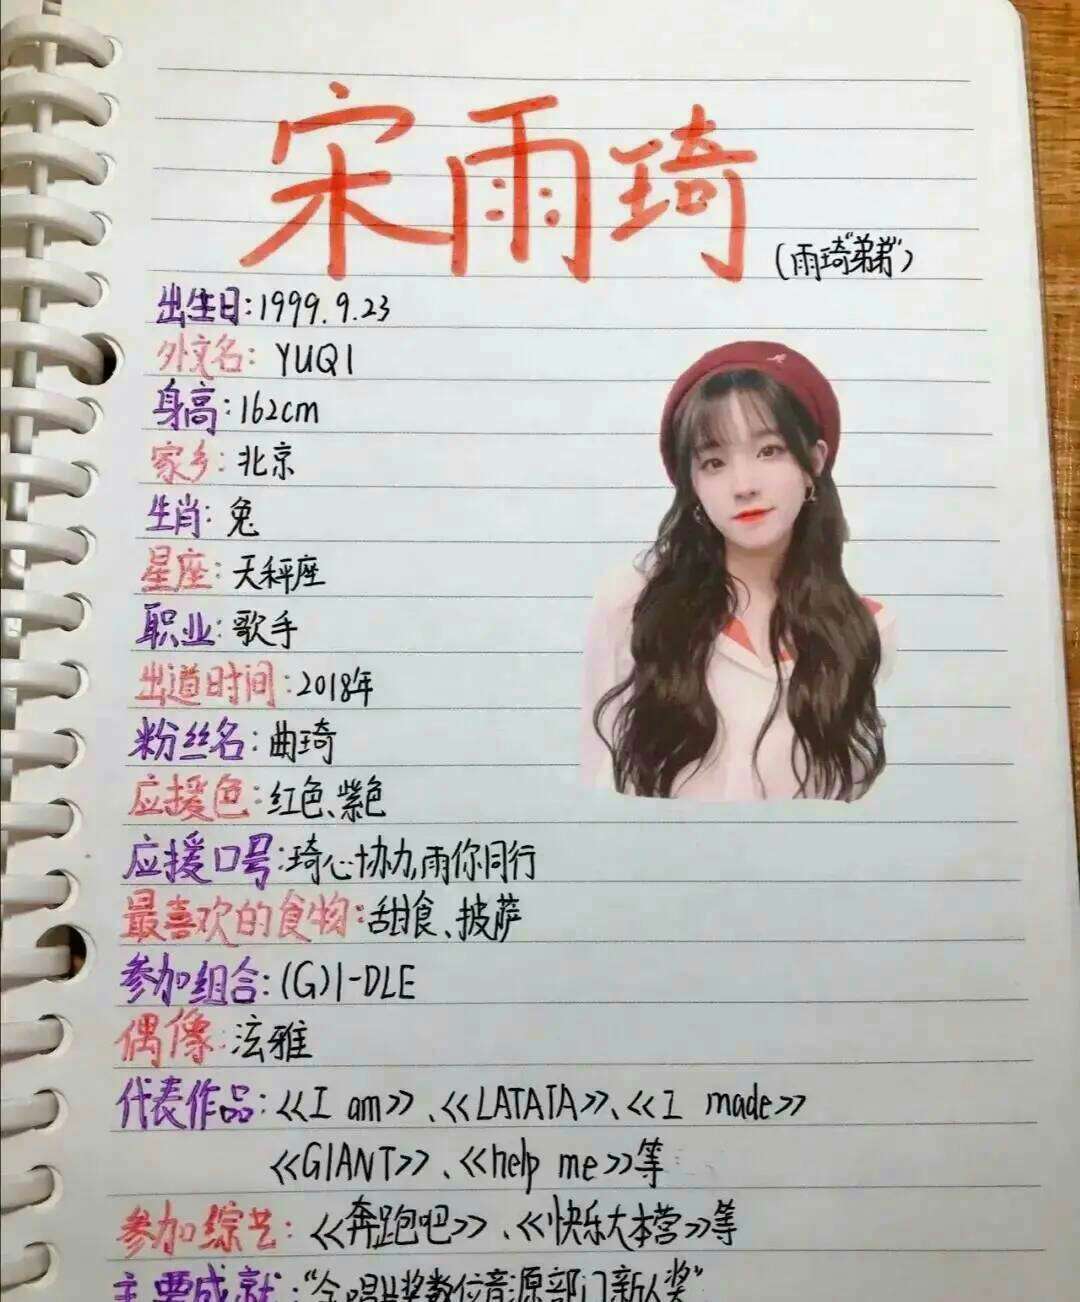 宋雨琦
(雨琦"弟弟")
出生日:1999.9.23
外文名:YUQI
身高:162cm
家乡:北京
生肖:兔
星座:天秤座
职业:歌手
出道时间:2018年
粉丝名:曲琦
应援色:红色、紫色
应援口号:琦心协力,雨你同行
最喜欢的食物:甜食、披萨
参加组合:(G)I-DLE
偶像:泫雅
代表作品:<<I am>>、<<LATATA>>、<<I made>>
<<GIANT>>、<<help me>>等
参加综艺:<<奔跑吧>>、<<快乐大本营>>等
主要成就:"金唱片奖数位音源部门新人奖"